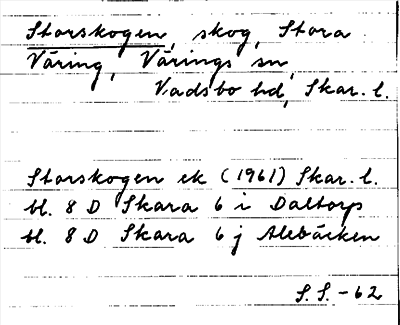 Storskogen, skog, Stora
Väring, Värings sn,
Vadsbo hd, Skar. l.
Storskogen ek (1961) Skar. l.
bl. 8 D Skara 6 i Daltorp
bl. 8 D Skara 6 j Alebäcken
S. S. -62